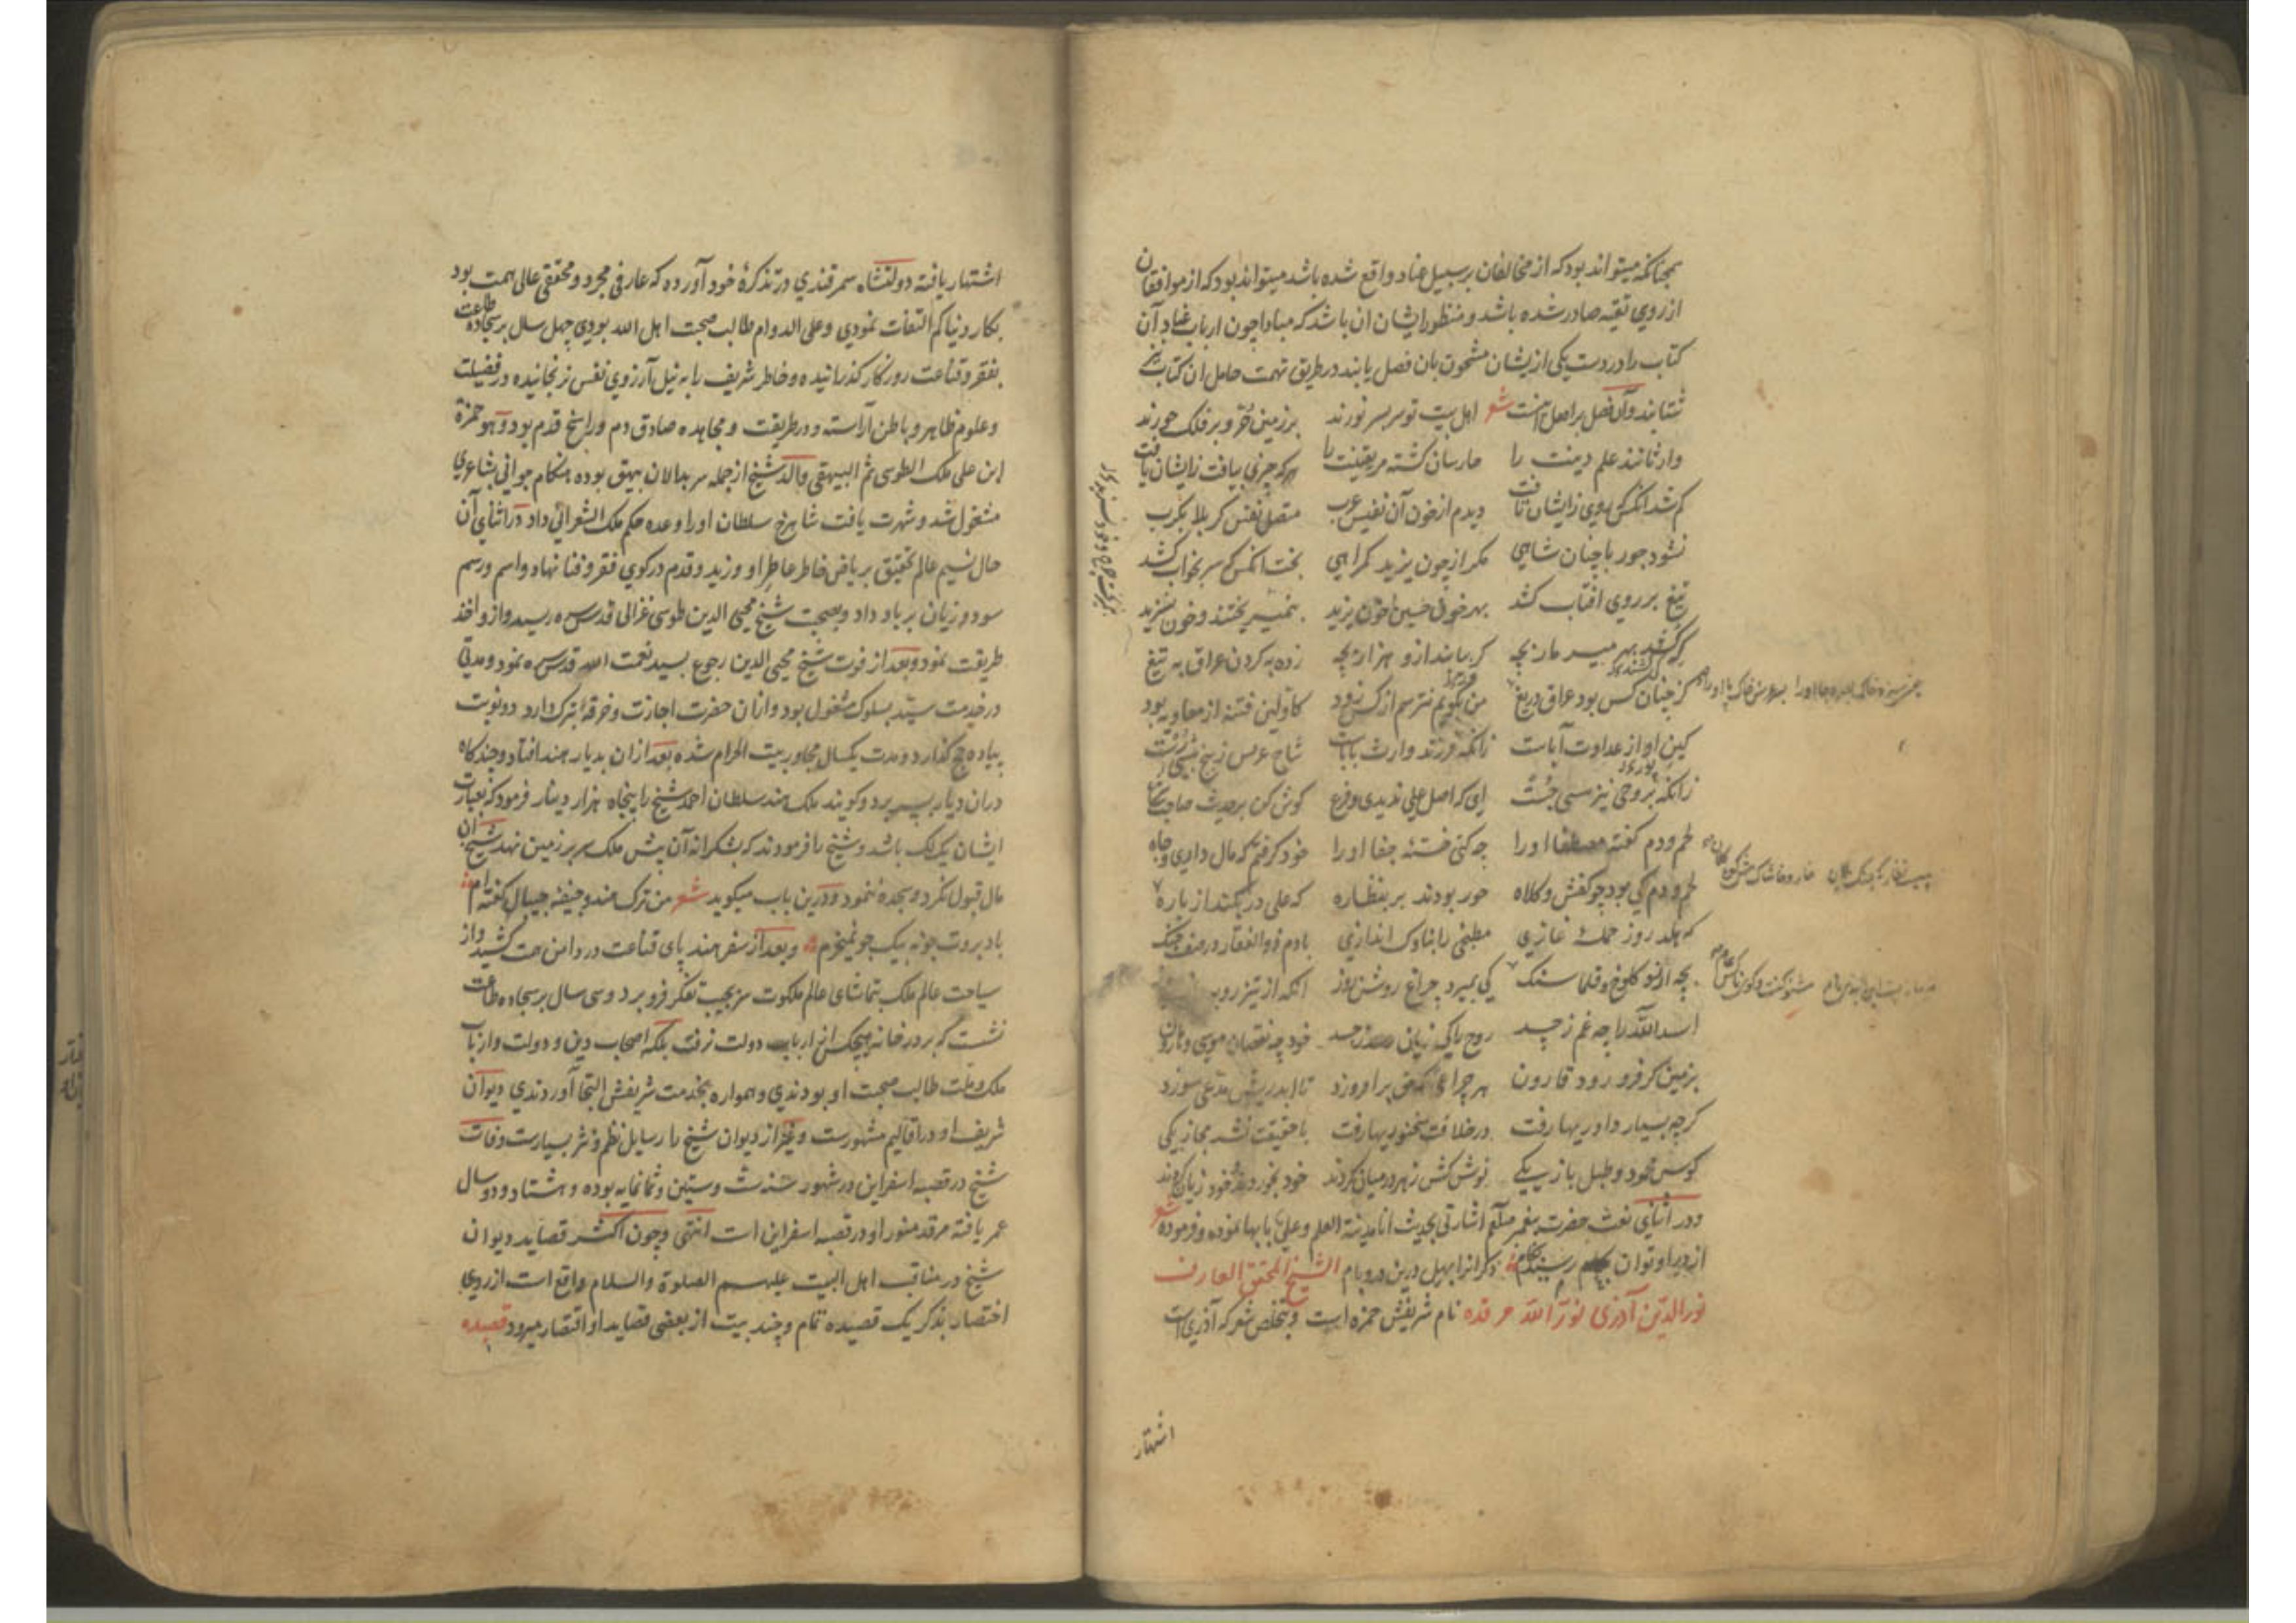 همچنانکه میتواند بود که از مخالفان بر سبیل عناد واقع شده باشد میتواند بود که از موافقان
از روی تقیه صادر شده باشد و منظور ایشان ان باشد که مبادا چون ارباب عناد آن
کتاب را در دست یکی از یشان مشحون بان فصل یابند در طریق تهمت حامل ان کتاب
شتابند وآن فصل بر اصل شعر اهل بیت تو سر بسر نورند بر زمین حر و بر فلک حورند
وارثانند علم دینت را حارسان گشته مر یقینت را هر که چیزی بیافت زایشان یافت
کم شد انکس که روی زایشان تافت دیدم از خون آن نفیس عرب متصل نفس کربلا بکرب
نشود جور با چنان شاهی مکر از چون یزید کمراهی بخت انکس که سر بخواب کشد
تیغ بر روی افتاب کشد بهر خون حسین خون یزید
که کشد بهر میر مار بچه کر بماند ازو هزار بچه زده به کردن عراق به تیغ
کز چنان کس بود عراق دریغ من بگویم نترسم از کس زود کاولین فتنه از معاویه بود
کین او از عداوت آباست زانکه فرزند وارث باباست
زانکه بروحی نیز مسی جست ای که اصل علی ندیدی و فرع کوش کن بر حدیث صاحب شرع
لحم و دم کفته مصطفا او را چه کنی خسته جفا او را خود کرفتم که مال داری و جاه
لحم و دم کی بود چو کفش و کلاه حور بودند بر بنظاره که علی در بکند از باره
که بکند روز حمله غازی مطبخی را بناوک اندازی با دم ذو الفقار در صف جنک
بچه ارزد کلوخ و قلماسنک کی بمیرد چراغ روشن روز انکه از تیز
اسد الله را چه غم ز حسد روح را کی زیانی رسد ز جسد خود چه نقصان موسی و هارون
بزمین کر فرو رود قارون هر چراغی که حق بر افروزد تا ابد ریش مدعی سوزد
کرچه بسیار داوریها رفت در خلافت سخنوریها رفت با حقیقت نشد مجاز یکی
کوس محمود و طبل باز یکی نوش کش زهر در میانی کردند خود بخوردند و خود زیان کردند
و در اثنای نعت حضرت پیغمبر صلعم اشارتی بحدیث انا مدینة العلم و علی بابها نموده و فرموده شعر
از در او توان رسید بکام دکرانرا بهل درین در و بام الشیخ المحقق العارف
نورالدین آذری نور الله مرقده نام شریفش حمزه است و تخلص شعر که آذری است
اشتهار
اشتهار یافته دولتشاه سمرقندی در تذکرهٔ خود آورده که عارفی مجرد و محققی عالی همت بود
بکار دنیا کم التفات نمودی و علی الدوام طالب صحبت اهل الله بودی چهل سال بر سجاده طاعت
بفقر و قناعت روزکار کذرانیده و خاطر شریف را به نیل آرزوی نفس نرنجانیده در فضیلت
و علوم ظاهر و باطن آراسته و در طریقت و مجاهده صادق دم و راسخ قدم بود و هو حمزة
ابن علی ملک الطوسی ثم البیهقی والد شیخ از جمله سربدالان بیهق بوده هنکام جوانی بشاعری
مشغول شد و شهرت یافت شاهرخ سلطان او را وعده حکم ملک الشعرائی داد در اثنای آن
حال نسیم عالم تحقیق بر ریاض خاطر عاطر او وزید و قدم در کوی فقر و فنا نهاد و اسم و رسم
سود و زیان بر باد داد و بصحبت شیخ محیی الدین طوسی غزالی قدس سره رسید و ازو اخذ
طریقت نمود و بعد از فوت شیخ محیی الدین رجوع بسید نعمت الله قدس سره نمود و مدتی
در خدمت سید بسلوک مشغول بود و از ان حضرت اجازت و خرقهٔ تبرک دارد دو نوبت
پیاده حج کذارد و مدت یکسال مجاور بیت الحرام شده بعد از ان بدیار هند افتاد و چند کاه
دران دیار بسر برد و کویند ملک هند سلطان احمد شیخ را پنجاه هزار دینار فرمود که بعبارت
ایشان یک لک باشد و شیخ را فرمودند که بشکرانه آن پیش ملک سر بر زمین نهد شیخ آن
مال قبول نکرد و سجده ننمود و درین باب میکوید شعر من ترک هند و جیفه جیپال کفته ام
باد بروت جونه بیک جو نمیخرم و بعد از سفر هند پای قناعت در دامن همت کشید و از
سیاحت عالم ملک بتماشای عالم ملکوت سر بجیب تفکر فرو برد و سی سال بر سجاده طاعت
نشست که بر در خانه هیچکس از ارباب دولت نرفت بلکه اصحاب دین و دولت و ارباب
ملک و ملت طالب صحبت او بودندی و همواره بخدمت شریفش التجا آوردندی دیوان
شریف او در اقالیم مشهورست و غیر از دیوان شیخ را رسایل نظم و نثر بسیارست وفات
شیخ در قصبه اسفراین در شهور سنه ست و ستین و ثمانمایه بوده و هشتاد و دو سال
عمر یافته مرقد منور او در قصبه اسفراین است انتهی و چون اکثر قصاید دیوان
شیخ در مناقب اهل البیت علیهم الصلوة والسلام واقع است از روی
اختصار بذکر یک قصیده تمام و چند بیت از بعضی قصاید او اقتصار میرود قصیده